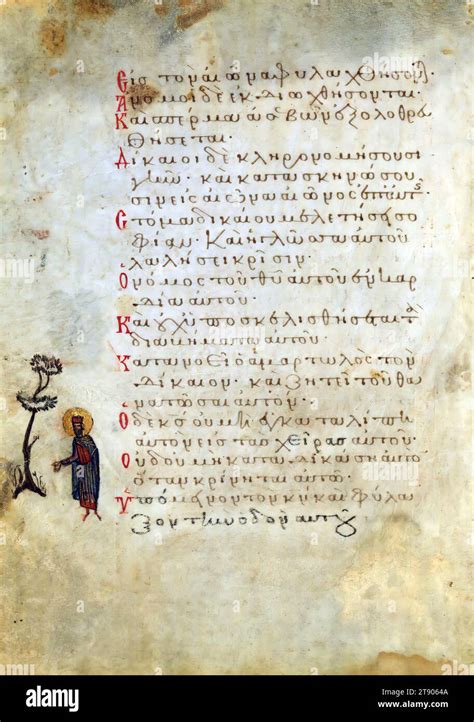 Εἰς τὸν αἰῶνα φυλαχθήσοντ
Ἄνομοι δὲ ἐκδιωχθήσονται·
Καὶ σπέρμα ἀσεβῶν ἐξολοθρευ
θήσεται·
Δίκαιοι δὲ κληρονομήσουσι
γῆν· καὶ κατασκηνώσου
σιν εἰς αἰῶνα αἰῶνος ἐπ' αὐτῆς
Στόμα δικαίου μελετήσει σο
φίαν· Καὶ ἡ γλῶσσα αὐτοῦ
λαλήσει κρίσιν·
Ὁ νόμος τοῦ θυ αὐτοῦ ἐν καρ
δίᾳ αὐτοῦ·
Καὶ οὐχ ὑποσκελισθήσεται τὰ
διαβήματα αὐτοῦ·
Κατανοεῖ ὁ ἁμαρτωλὸς τὸν
δίκαιον· καὶ ζητεῖ τοῦ θα
νατῶσαι αὐτόν·
Ὁ δὲ κς οὐ μὴ ἐγκαταλίπῃ
αὐτὸν εἰς τὰς χεῖρας αὐτοῦ·
Οὐδ' οὐ μὴ καταδικάσηται
ὅταν κρίνηται αὐτῷ·
Ὑπόμεινον τὸν κν καὶ φύλα
ξον τὴν ὁδὸν αὐτοῦ
alamy
Image ID: 2T9064A
www.alamy.com